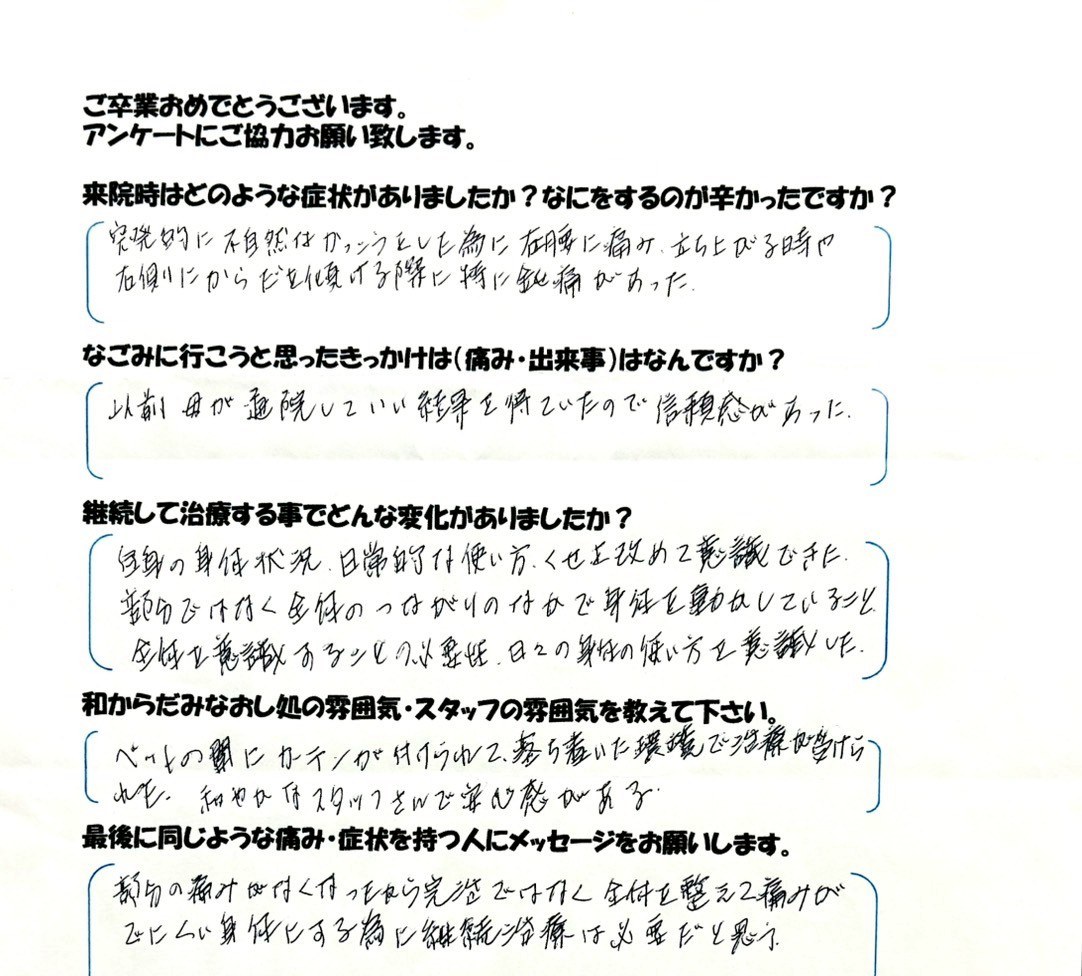 ご卒業おめでとうございます。
アンケートにご協力お願い致します。
来院時はどのような症状がありましたか？なにをするのが辛かったですか？
突発的に不自然なかっこうをした為に右腰に痛み、立ち上がる時や
右側にからだを傾ける際に特に鈍痛があった.
なごみに行こうと思ったきっかけは（痛み・出来事）はなんですか？
以前 母が通院していい結果を得ていたので信頼感があった.
継続して治療する事でどんな変化がありましたか？
自身の身体状況、日常的な使い方、くせを改めて意識できた.
部分ではなく全体のつながりのなかで身体を動かしていること
全体を意識することの必要性、日々の身体の使い方を意識した.
和からだみなおし処の雰囲気・スタッフの雰囲気を教えて下さい。
ベットの間にカーテンが付けられて、落ち着いた環境で治療が受けら
れた. 和やかなスタッフさんで安心感がある.
最後に同じような痛み・症状を持つ人にメッセージをお願いします。
部分の痛みがなくなったから完治ではなく全体を整えて痛みが
でにくい身体にする為に継続治療は必要だと思う.